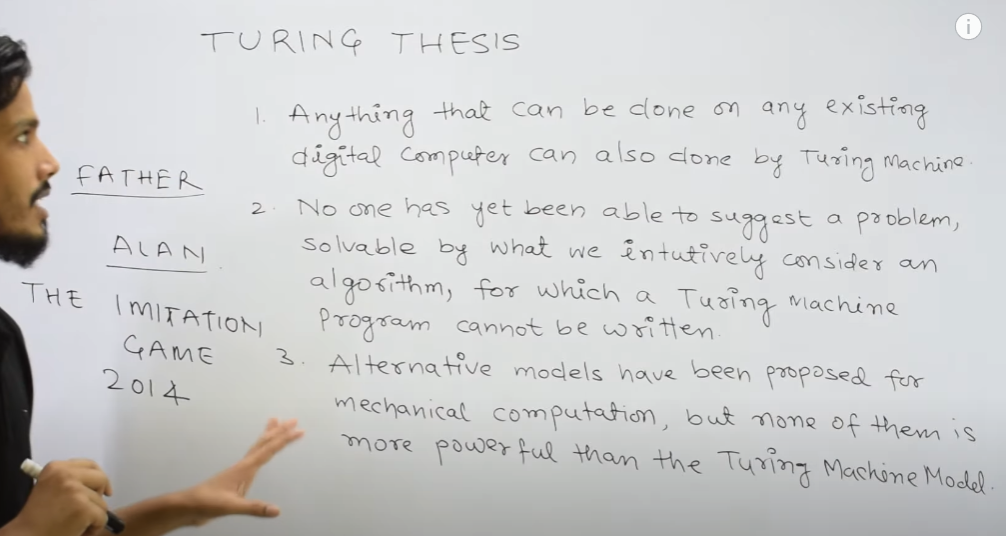 TURING THESIS
1. Anything that can be done on any existing
digital computer can also done by Turing Machine.
2. No one has yet been able to suggest a problem,
solvable by what we intutively consider an
algorithm, for which a Turing Machine
Program cannot be written.
3. Alternative models have been proposed for
mechanical computation, but none of them is
more powerful than the Turing Machine Model.
FATHER
ALAN
THE IMITATION
GAME
2014
i